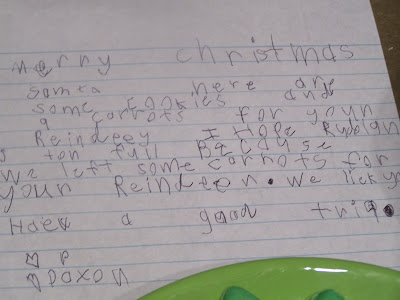 merry christmas
Santa here are
some cookies and
9 carrots for your
Reindeey I Hope Rudolph
is ton full Because
We left some carrots for
your Reindeen. We lick you
Haev a good trip.